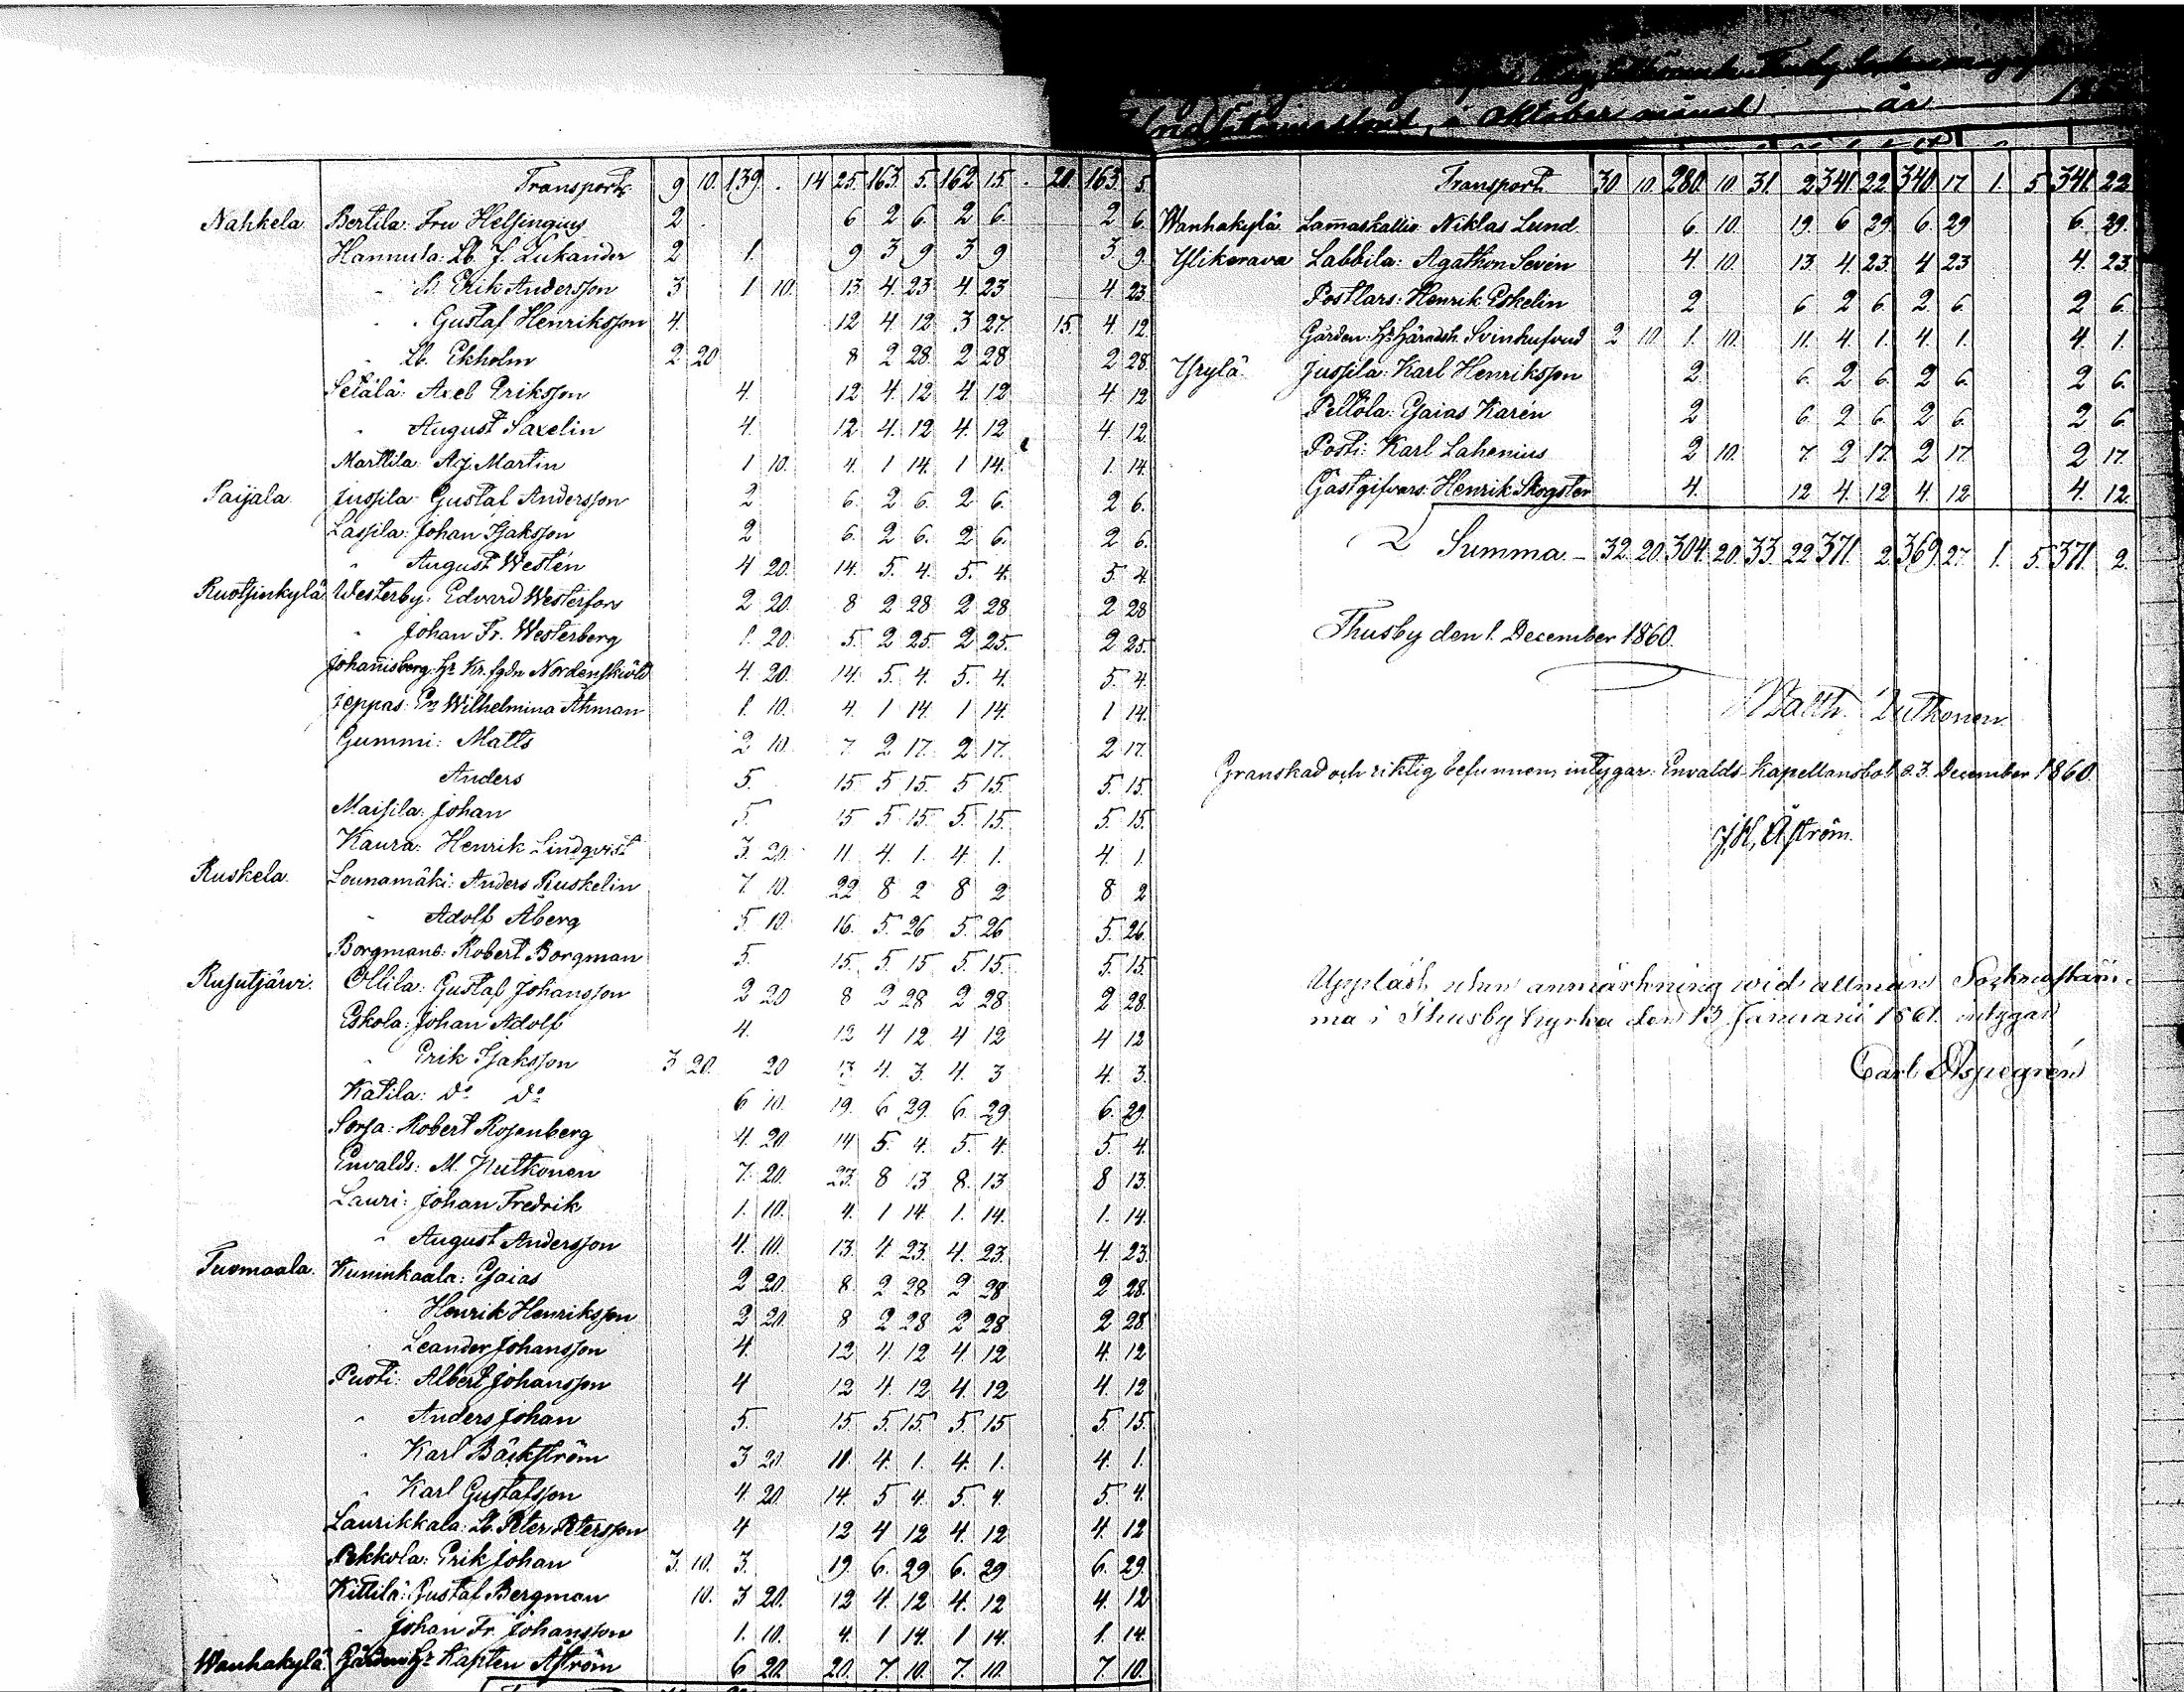 Transport 9 10. 139 . 14 25. 163. 5. 162 15. . 20. 163 5.
Nahkela. Bertila: Fru Helsingius 2 6 2 6. 2 6. 2 6.
Hannula: Lb. J. Lukander 2 1. 9 3 9 3 9 3 9.
" B. Erik Andersson 3 1 10. 13 4 23 4 23 4 23.
" " Gustaf Henriksson 4. 12 4 12 3 27. 15. 4 12
" Lb. Ekholm 2 20 8 2 28. 2 28 2 28.
Setälä: Axel Eriksson 4. 12 4. 12 4. 12 4 12
" August Saxelin 4. 12 4. 12 4. 12 4. 12.
Marttila: Aj. Martin 1 10. 4. 1 14. 1 14. 1. 14.
Paijala. Jussila: Gustaf Andersson 2 6. 2 6. 2 6. 2 6.
Lassila: Johan Isaksson 2 6. 2 6. 2 6. 2 6.
" August Westén 4 20. 14. 5. 4. 5. 4. 5 4.
Ruotsinkylä Westerby: Edvard Westerfors 2 20. 8 2 28 2 28 2 28
" Johan Fr. Westerberg 1. 20. 5. 2 25. 2 25. 2 25.
Johanisberg: Hr Kr. fgdn Nordenskiöld 4. 20. 14. 5. 4. 5. 4. 5. 4.
Jeppas: En Wilhelmina Åhman 1. 10. 4. 1 14. 1 14. 1 14.
Gummi: Matts 2 10. 7. 2 17. 2 17. 2 17.
Anders 5. 15 5 15. 5 15. 5. 15.
Maisila: Johan 5. 15 5 15. 5. 15. 5. 15.
Kaura: Henrik Lindqvist 3. 20. 11. 4. 1. 4. 1. 4. 1.
Ruskela. Lounamäki: Anders Ruskelin 7 10. 22 8 2 8 2 8 2
" Adolf Åberg 5. 10. 16. 5. 26 5. 26 5. 26.
Borgmans: Robert Borgman 5. 15. 5. 15 5. 15. 5. 15.
Rusutjärvi. Ollila: Gustaf Johansson 2 20 8 2 28 2 28. 2 28.
Eskola: Johan Adolf 4. 12 4 12 4 12 4 12
" Erik Isaksson 3 20. 20 13 4. 3. 4. 3 4. 3.
Katila: do do 6 10. 19. 6 29. 6. 29. 6. 29.
Sorsa: Robert Rosenberg 4. 20. 14 5. 4. 5. 4. 5. 4.
Envalds: M. Hutkonen 7. 20. 23. 8 13 8. 13. 8 13.
Lauri: Johan Fredrik 1. 10. 4. 1 14. 1. 14. 1. 14.
" August Andersson 4. 10. 13. 4 23. 4. 23. 4 23.
Tuomaala. Kuninkaala: Esaias 2 20. 8. 2 28 2 28 2 28.
" Henrik Henriksson 2 20. 8 2 28 2 28 2 28.
" Leander Johansson 4. 12 4. 12 4. 12 4. 12
Puoti: Albert Johansson 4 12 4. 12 4. 12 4. 12
" Anders Johan 5. 15. 5. 15. 5. 15 5. 15.
" Karl Bäckström 3 20. 11. 4. 1. 4. 1. 4. 1.
" Karl Gustafsson 4. 20. 14. 5 4. 5. 4. 5. 4.
Laurikkala: Lb. Peter Petersson 4 12 4 12 4. 12 4. 12
Pekkola: Erik Johan 3. 10. 3. 19. 6. 29 6. 29 6. 29.
Kittilä: Gustaf Bergman 10. 3 20. 12 4. 12 4. 12 4. 12
" Johan Fr. Johansson 1. 10. 4. 1 14. 1 14. 1. 14.
Wanhakylä. Gården: Hr Kapten Åström 6 20. 20. 7. 10. 7. 10. 7. 10.
Oktober månad år
Transport 30 10. 280. 10 31. 2 341. 22 340. 17 1. 5 341. 22
Wanhakylä Lamaskallio Niklas Lund. 6. 10. 19. 6 29. 6. 29 6. 29.
Ylikerava Labbila: Agathon Sevén 4. 10. 13. 4. 23. 4 23. 4. 23.
Postlars: Henrik Eskelin 2 6 2 6. 2. 6. 2 6.
Gården: Hr Häradsh. Svinhufvud 2 10 1. 10. 11. 4. 1. 4. 1. 4. 1.
Hyrylä Jussila: Karl Henriksson 2 6. 2 6. 2 6. 2 6.
Pellola: Esaias Karén 2 6. 2 6. 2 6. 2 6.
Posti: Karl Lahenius 2 10. 7. 2 17. 2 17. 2 17.
Gästgifvars: Henrik Skogster 4. 12 4. 12 4. 12 4. 12.
Summa 32. 20. 304. 20. 33. 22 371. 2. 369. 27. 1. 5. 371. 2.
Thusby den 1. December 1860.
Balth. Hutkonen.
Granskad och riktig befunnen, intygar: Envalds Kapellansbol d. 3. December 1860.
J. H. Åström.
Uppläst utan anmärkning wid allmän Socknestäm-
ma i Thusby kyrka den 13 Januarii 1861. intygar
Carl Aspegrén